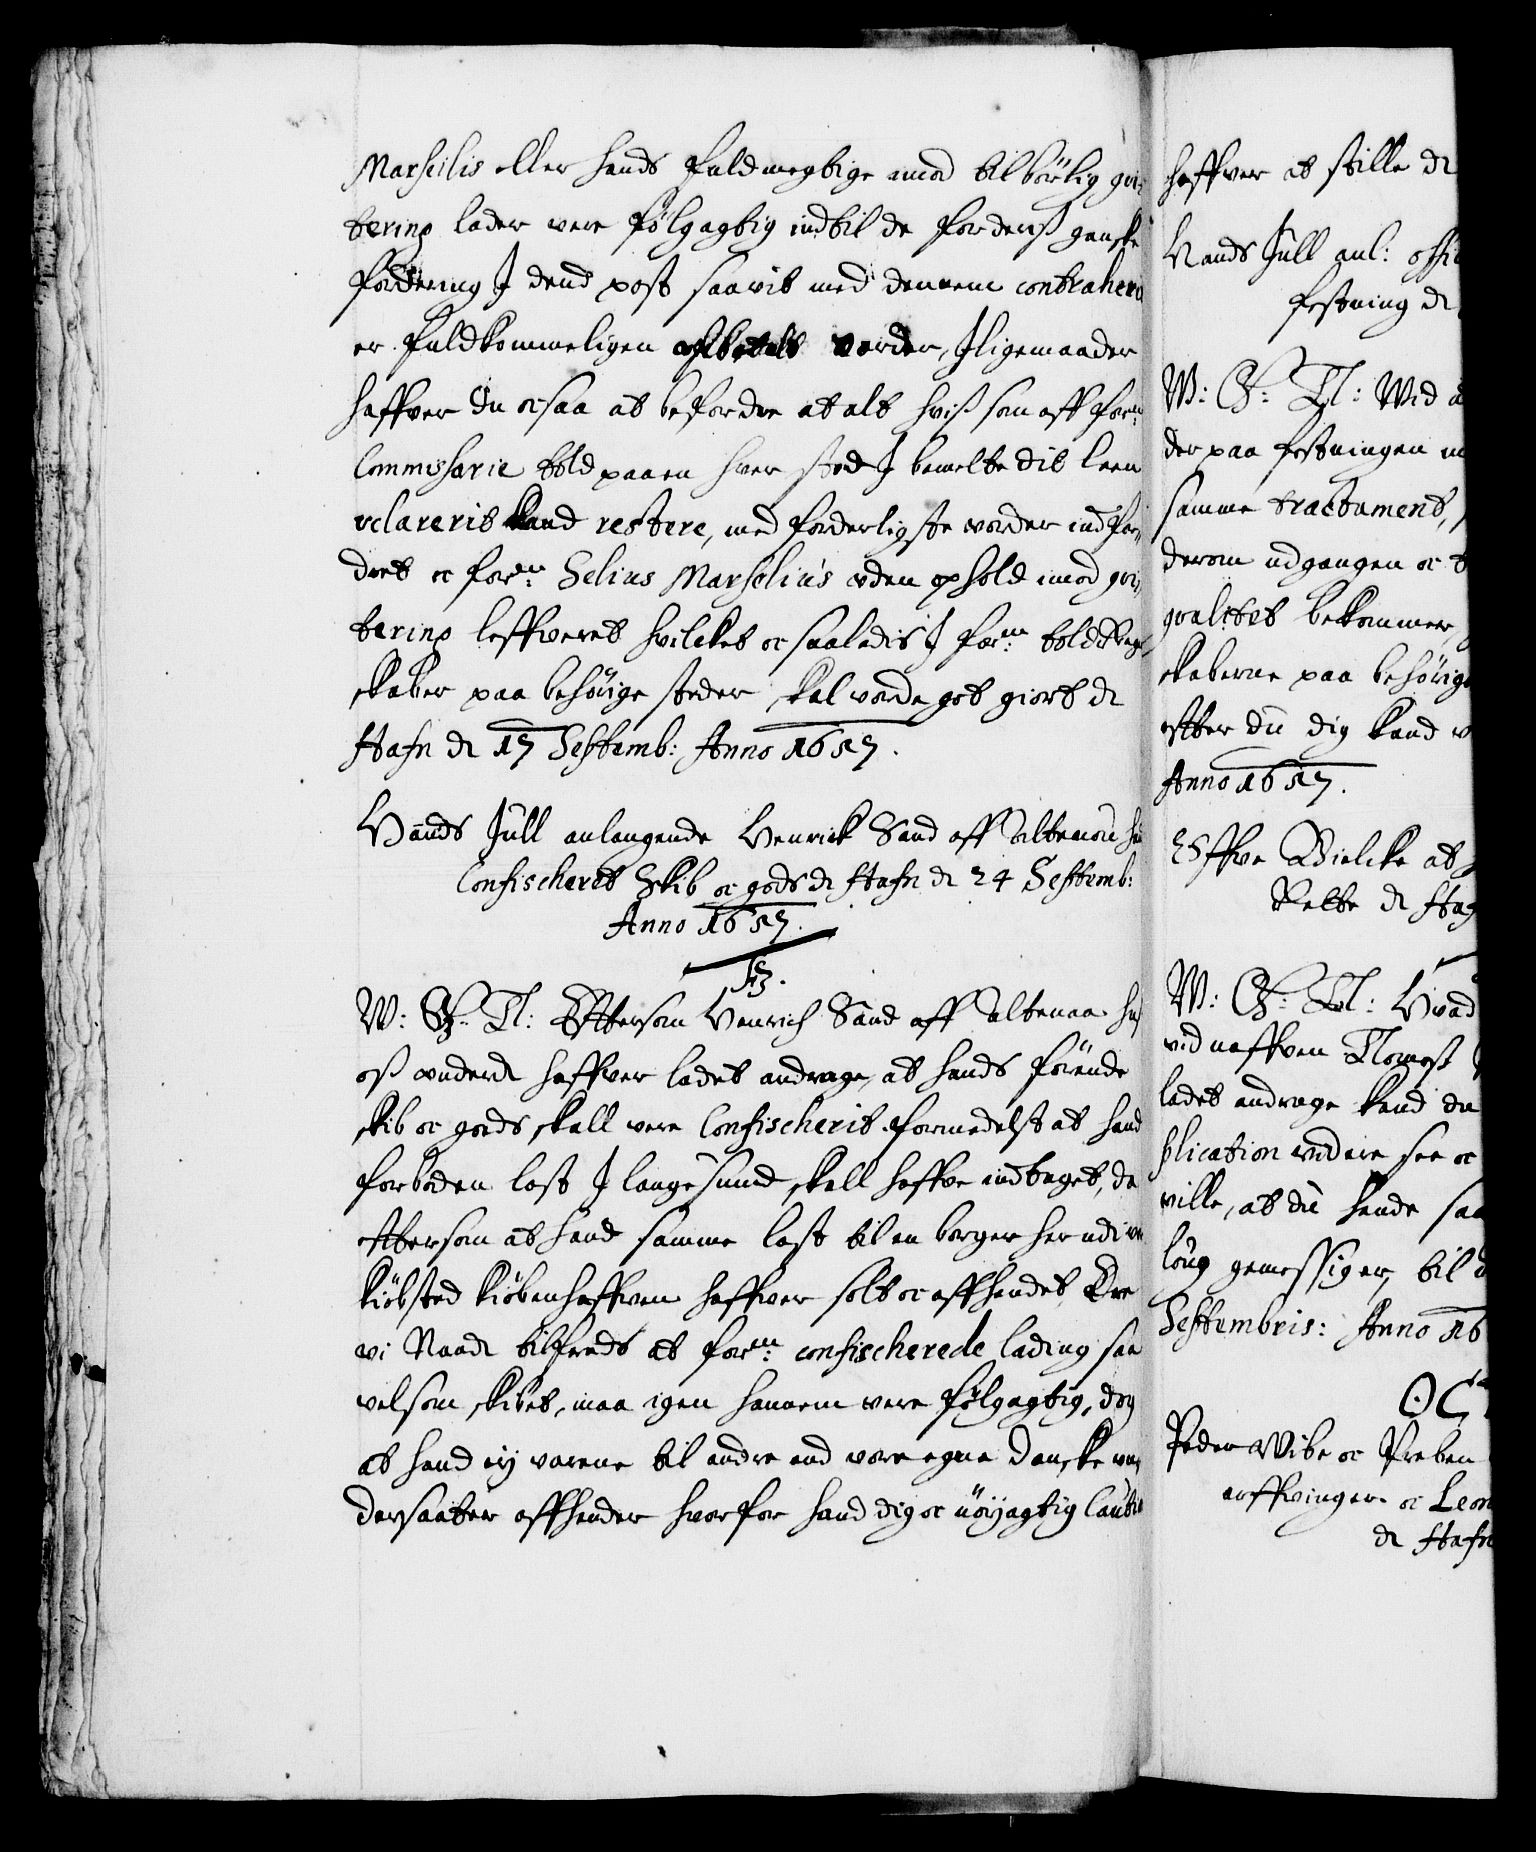 Marselis eller hands fuldmegtige imod tilbörlig qvi-
tering lader vere fölgagtig indtil de forderis ganske
fordering J dend post saavit med dennem contraherit
er fuldkommeligen affbetalt vorder, Jligemaader
haffver du ocsaa at befordre at alt hviss som aff forne:
Commissarie told paa en hver sted J bemelte dit leen
vclarerit kand restere, med forderligste vorder indfor-
dret oc forne Selius Marselius vden ophold imod qvi-
tering leffveret hvilcket oc saaledis J forne: toldregn-
skaber paa behörige steder skal vorde got giort de
Hafn de 17 Septemb: Anno 1657.
Hands Jull anlangende Henrick Sand aff Altenau
Confischeret Skib oc gods de Hafn de 24 Septemb:
Anno 1657.
F3.
W: G: T: Efftersom Henrich Sand aff Altenaa hos
oss underd haffver ladet andrage, at hands förende
skib oc gods skall vere Confischerit formedelst at hand
forboden last J langesund skall haffve indtaget, da
effttersom at hand samme last til en borger her udi vor
kiöbsted kiöbenhaffven haffver solt oc affhendet Ere
vi Naad tilfreds at forne: confischerede lading saa
velsom skibet, maa igen hannem vere fölgagtig, dog
at hand ey varene til andre end vore egne Danske un-
dersaatter affhender hvorfor hand dig oc nöyagtig Caution
haffver at stille de
Hands Jull anl: offi
festning de
W: G: T: Wid
der paa festningen
samme tractament,
derom udgangen oc
qvalitet bekommer
skaberne paa behörige
effter du dig kand
Anno 1657.
Effve Bielcke at
Rette de Haf
W: G: T: Hvad
vidnaffven Tomess
ladet andrage kand du
plication videre see oc
ville, at du hende saa
loug gemessiger, til
Septembris: Anno 16
OCT
Peder Wibe oc Preben
arffvinger oc Leon
de Hafn